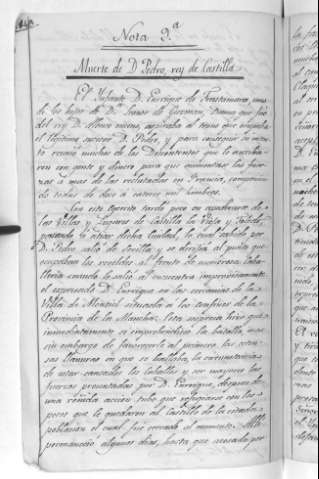 Nota 9.ª
Muerte de D. Pedro, rey de Castilla
El Infante D. Enrique de Trastamara, uno
de los hijos de D.ª Leonor de Guzman, Dama que fué
del rey D. Alfonso onceno, aspiraba al trono que ocupaba
el legítimo sucesor D. Pedro, y para conseguir su inten
to reunió muchos de los Descontentos que le
con gente y dinero para que aumentase las fuer
zas á mas de las reclutadas en Francia, componien
do todas de doce á catorce mil hombres.
Con este Egercito tardó poco en apoderarse de
las Villas y Lugares de Castilla la Vieja y
pasando á sitiar dicha Ciudad, lo cual sabido por
D. Pedro salió de Sevilla, y se dirigió al punto que
ocupaban los rebeldes al frente de numerosa Caba
llería cuando le salió al encuentro imprevisamente
el espresado D. Enrique en las cercanías de la
Villa de Montiel situada á los confines de la
Provincia de la Mancha. Esta sorpresa hizo que
inmediatamente se emprendiese la batalla, mas
sin embargo de favorecerle al primero, las
llanuras en que se hallaba, la circunstancia
de estar cansados los caballos y ser mayores las
fuerzas presentadas por D. Enrique, despues de
una reñida accion tubo que refugiarse con los
pocos que le quedaron al Castillo de la citada
poblacion el cual fué cercado al momento. Allí
permaneció algunos dias, hasta que acosado por